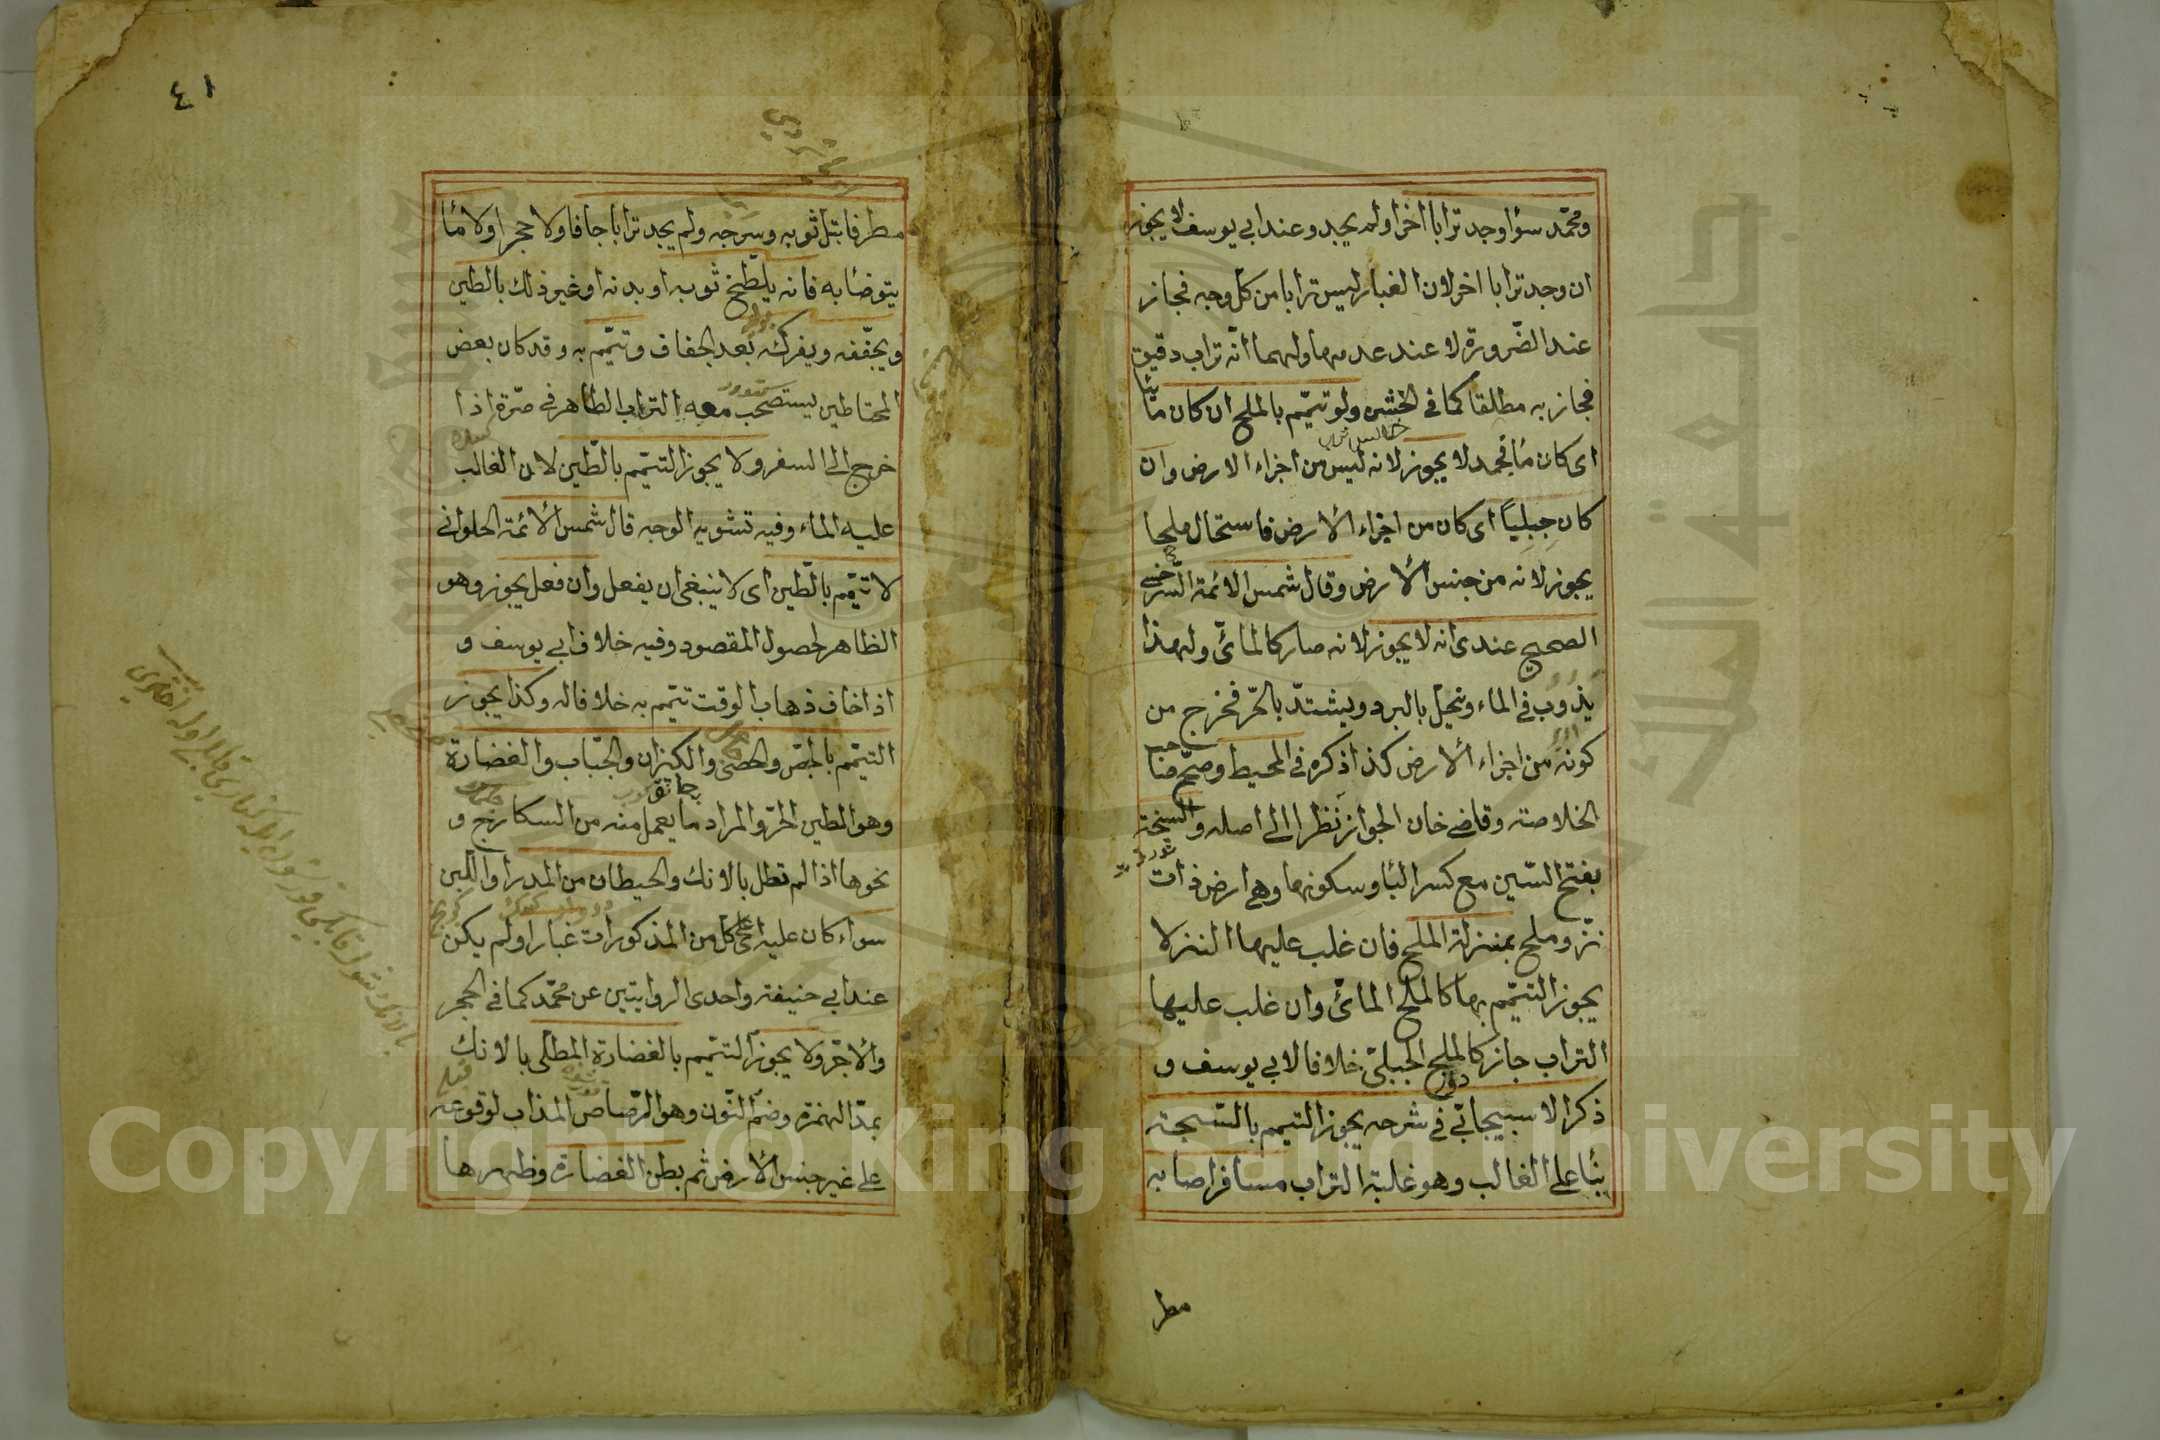 ومحمد سوا وجد ترابا اخر اولم يجد وعند ابي يوسف لا يجوز
ان وجد ترابا اخر لان الغبار ليس ترابا من كل وجه فجاز
عند الضّرورة لا عند عدمها ولهما انّه تراب دقيق
فجاز به مطلقا كما في الخشن ولو تيمّم بالملح ان كان مائيا
اى كان ماء فجمد لا يجوز لانه ليس من اجزاء الارض وان
كان جبليًا اى كان من اجزاء الأرض فاستحال ملحا
يجوز لانه من جنس الأرض وقال شمس الائمة السّرخسي
الصحيح عندى انه لا يجوز لانه صار كالمائي ولهذا
يذوب في الماء وينحل بالبرد ويشتدّ بالحرّ فخرج من
كونه من اجزاء الأرض كذا ذكره في المحيط وصحّح صاحب
الخلاصة وقاضي خان الجواز نظرا الى اصله والسبخة
بفتح السّين مع كسر البا وسكونها وهي ارض ذات
نزّ وملح بمنزلة الملح فان غلب عليها النز لا
يجوز التيمّم بها كالملح المائي وان غلب عليها
التراب جاز كالملح الجبليّ خلافا لابي يوسف و
ذكر الاسبيجابي في شرحه يجوز التيمم بالسّبخة
بناء على الغالب وهو غلبة التراب مسافر اصابه
مطر
٤١
مطر فابتل ثوبه وسرجه ولم يجد ترابا جافا ولا حجرا ولا ماء
يتوضا به فانه يلطّخ ثوبه او بدنه او غير ذلك بالطين
ويجفّفه ويفركه بعد الجفاف وتيمّم به وقد كان بعض
المحتاطين يستصحب معه التراب الطاهر في صرّة اذا
خرج الى السفر ولا يجوز التيمّم بالطّين لان الغالب
عليه الماء وفيه تشويه الوجه قال شمس الأئمة الحلواني
لا تيمّم بالطّين اى لا ينبغي ان يفعل وان فعل يجوز وهو
الظاهر لحصول المقصود وفيه خلاف ابي يوسف و
اذا خاف ذهاب الوقت تيمّم به خلافا له وكذا يجوز
التيمّم بالجصّ والحصى والكيزان والجباب والغضارة
وهو الطين الحرّ والمراد ما يعمل منه من السكارج و
نحوها اذا لم تطل بالانك والحيطان من المدر او اللبن
سواء كان عليه اى على كل من المذكورات غبار اولم يكن
عند ابي حنيفة واحدى الروايتين عن محمّد كما في الحجر
والآجرّ ولا يجوز التيمم بالغضارة المطلى بالانك
بمدّ الهمزة وضم النّون وهو الرّصاص المذاب لوقوعه
على غير جنس الأرض ثم بطن الغضارة وظهرها
Copyright © King Saud University